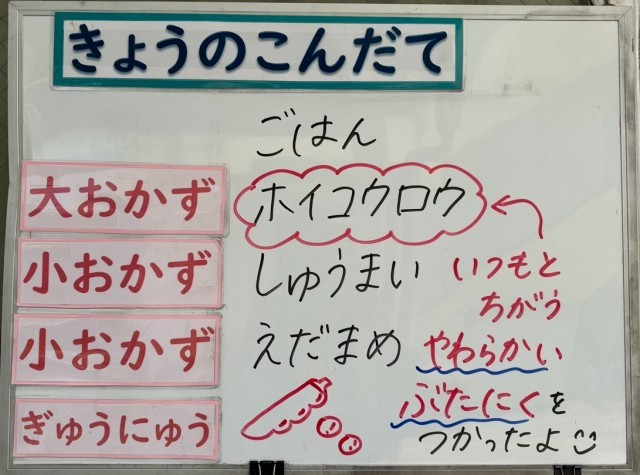 きょうのこんだて
ごはん
大おかず ホイコウロウ
小おかず しゅうまい
小おかず えだまめ
ぎゅうにゅう
いつもと
ちがう
やわらかい
ぶたにくを
つかったよ